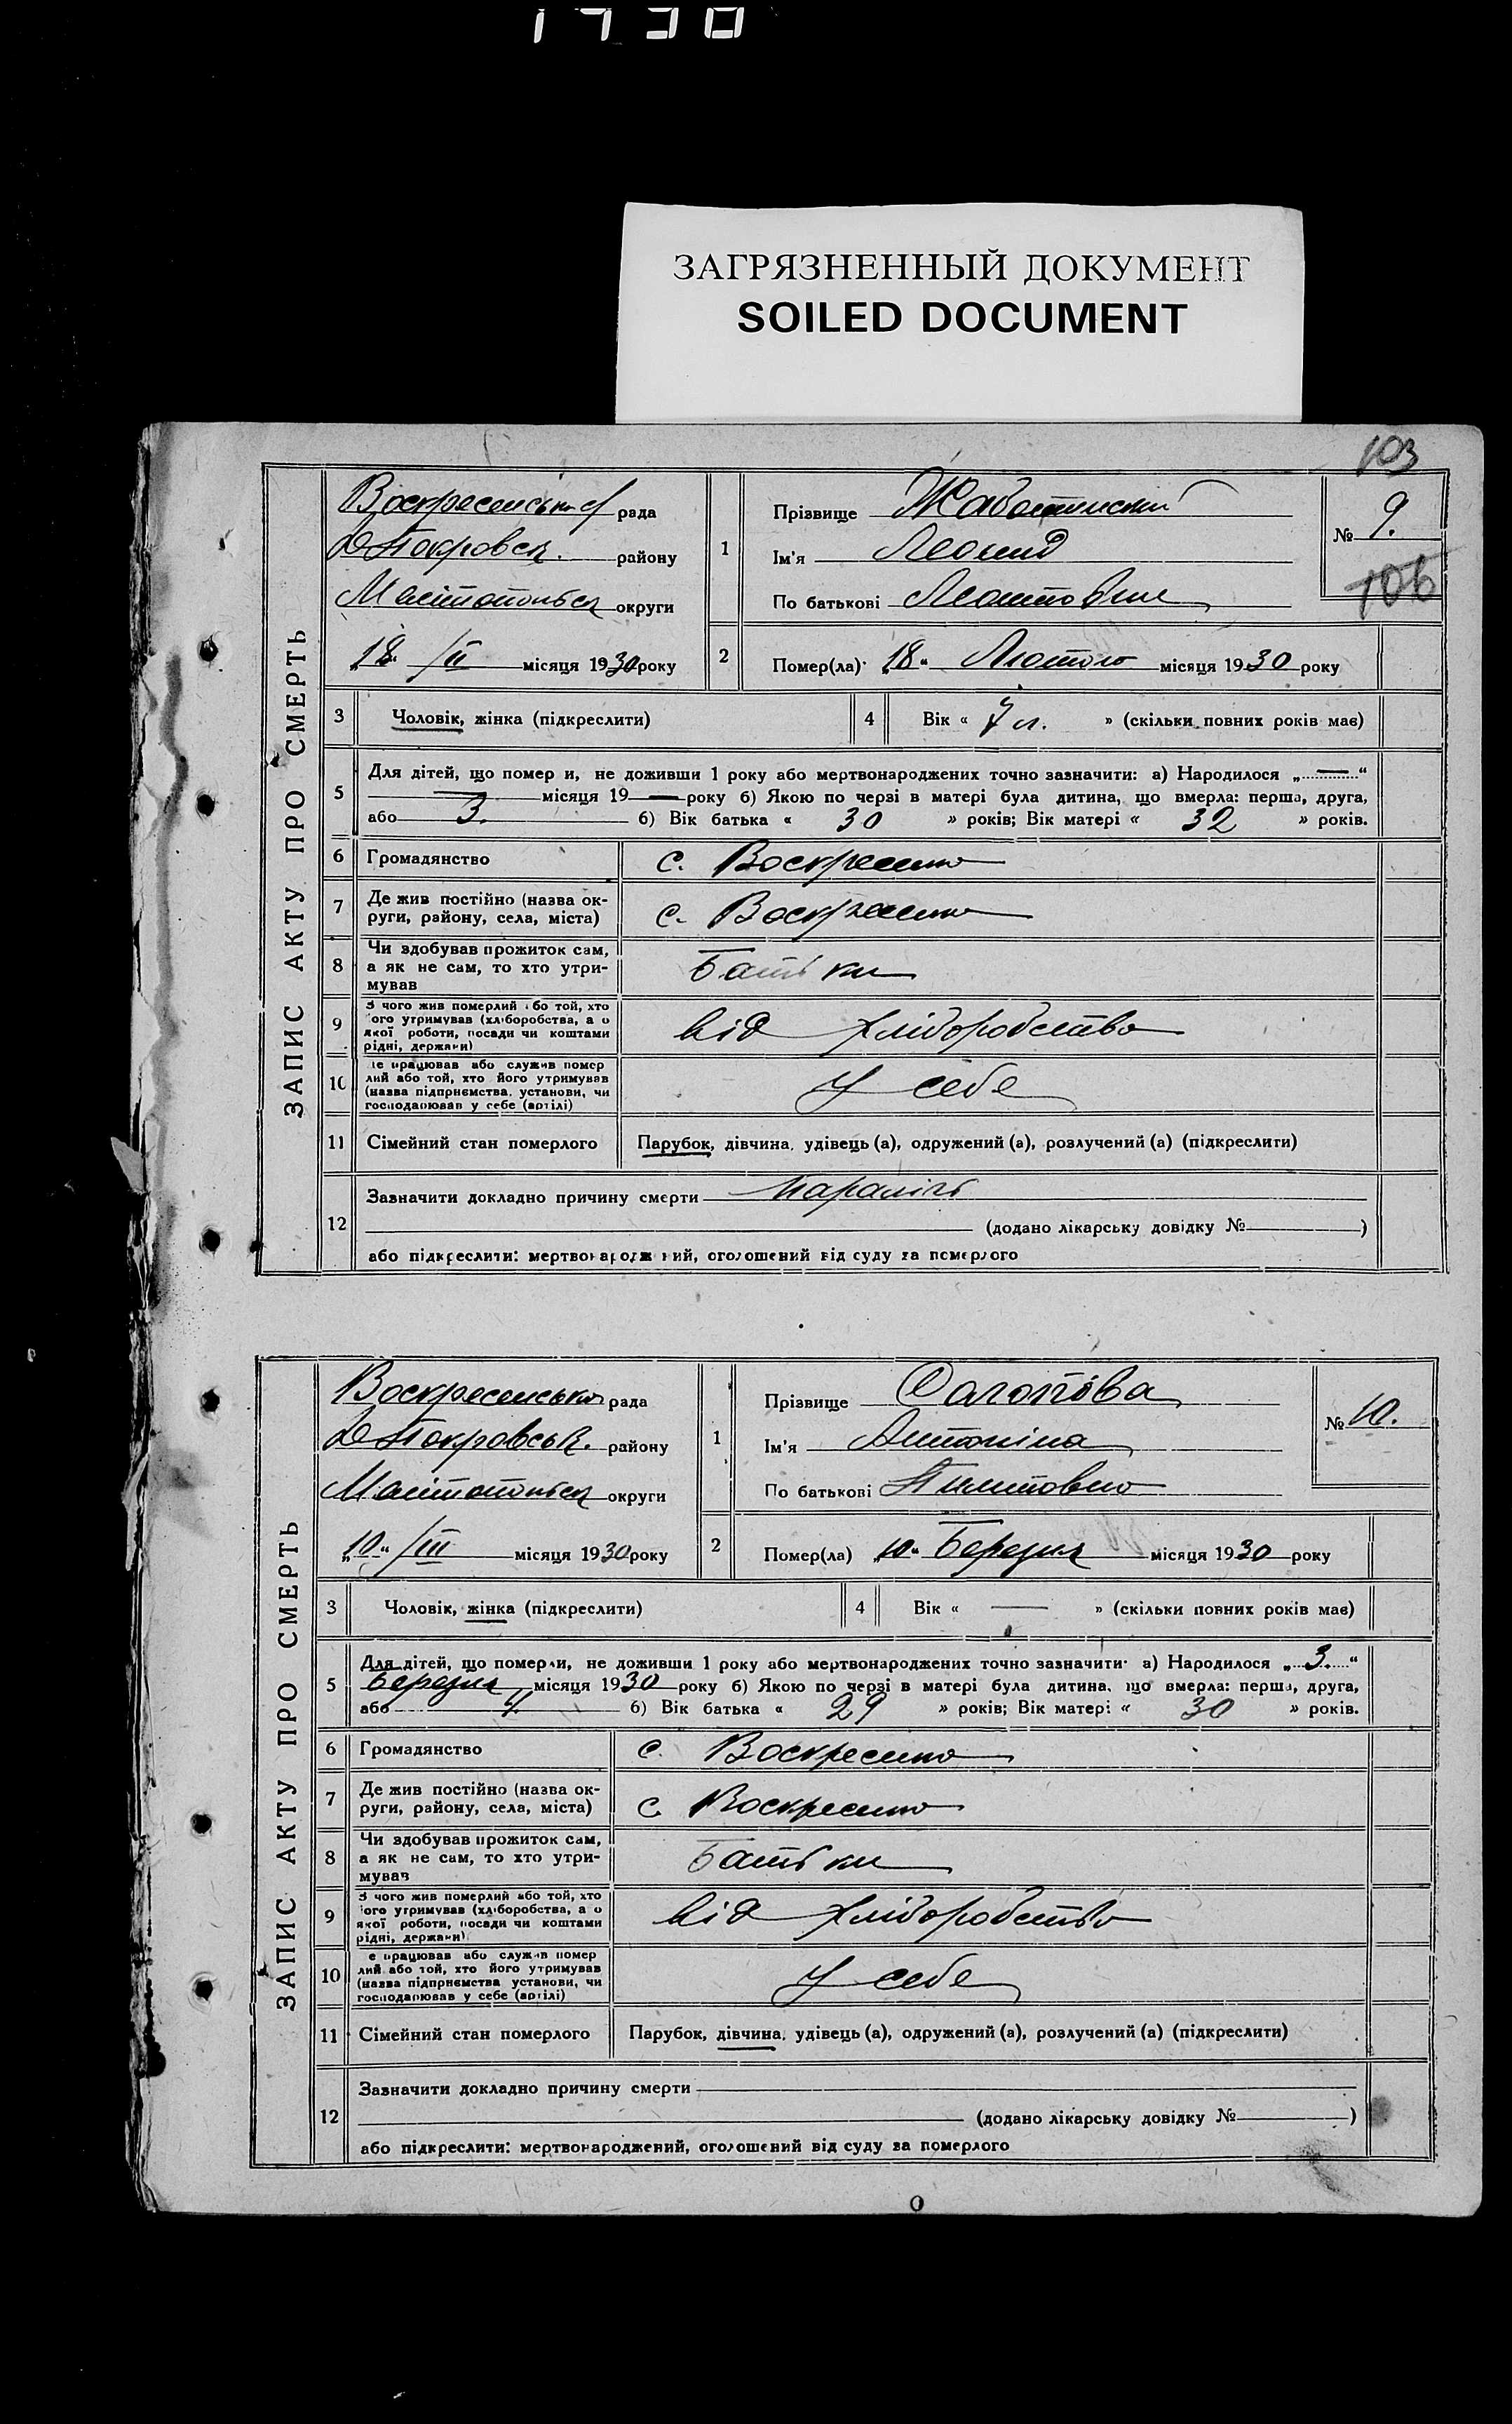 1730
ЗАГРЯЗНЕННЫЙ ДОКУМЕНТ
SOILED DOCUMENT
103
ЗАПИС АКТУ ПРО СМЕРТЬ
Воскресенська рада
района
округи
18 /II місяця 1930 року
1
Прізвище Жаботинский
Ім'я Леонид
По батькові
№ 9.
106
2
Помер(ла) „18“ Лютого місяця 1930 року
3
Чоловік, жінка (підкреслити)
4
Вік « л. » (скільки повних років має)
5
Для дітей, що помер и, не доживши 1 року або мертвонароджених точно зазначити: а) Народилося „ — “
— місяця 19 — року б) Якою по черзі в матері була дитина, що вмерла: перша, друга,
або 3. б) Вік батька « 30 » років; Вік матері « 32 » років.
6
Громадянство
с. Воскресенка
7
Де жив постійно (назва ок-
руги, району, села, міста)
с. Воскресенка
8
Чи здобував прожиток сам,
а як не сам, то хто утри-
мував
Батьки
9
З чого жив померлий або той, хто
ого утримував (хліборобства, а о
якої роботи, посади чи коштами
рідні, держави)
від хліборобства
10
е працював або служив помер
лий або той, хто його утримував
(назва підприємства, установи, чи
господарював у себе (артілі)
У себе
11
Сімейний стан померлого
Парубок, дівчина, удівець (а), одружений (а), розлучений (а) (підкреслити)
12
Зазначити докладно причину смерти Параліч
(додано лікарську довідку № )
або підкреслити: мертвонароджений, оголошений від суду за померлого
ЗАПИС АКТУ ПРО СМЕРТЬ
Воскресенська рада
району
округи
„10“ /III місяця 1930 року
1
Прізвище
Ім'я Антоніна
По батькові
№ 10.
2
Помер(ла) „10“ Березня місяця 1930 року
3
Чоловік, жінка (підкреслити)
4
Вік « — » (скільки повних років має)
5
Для дітей, що померли, не доживши 1 року або мертвонароджених точно зазначити: а) Народилося „ 3. “
Березня місяця 1930 року б) Якою по черзі в матері була дитина, що вмерла: перша, друга,
або 4. б) Вік батька « 29 » років; Вік матері « 30 » років.
6
Громадянство
с. Воскресенка
7
Де жив постійно (назва ок-
руги, району, села, міста)
с. Воскресенка
8
Чи здобував прожиток сам,
а як не сам, то хто утри-
мував
Батьки
9
З чого жив померлий або той, хто
ого утримував (хліборобства, а о
якої роботи, посади чи коштами
рідні, держави)
від хліборобства
10
е працював або служив помер
лий або той, хто його утримував
(назва підприємства установи, чи
господарював у себе (артілі)
У себе
11
Сімейний стан померлого
Парубок, дівчина, удівець (а), одружений (а), розлучений (а) (підкреслити)
12
Зазначити докладно причину смерти
(додано лікарську довідку № )
або підкреслити: мертвонароджений, оголошений від суду за померлого